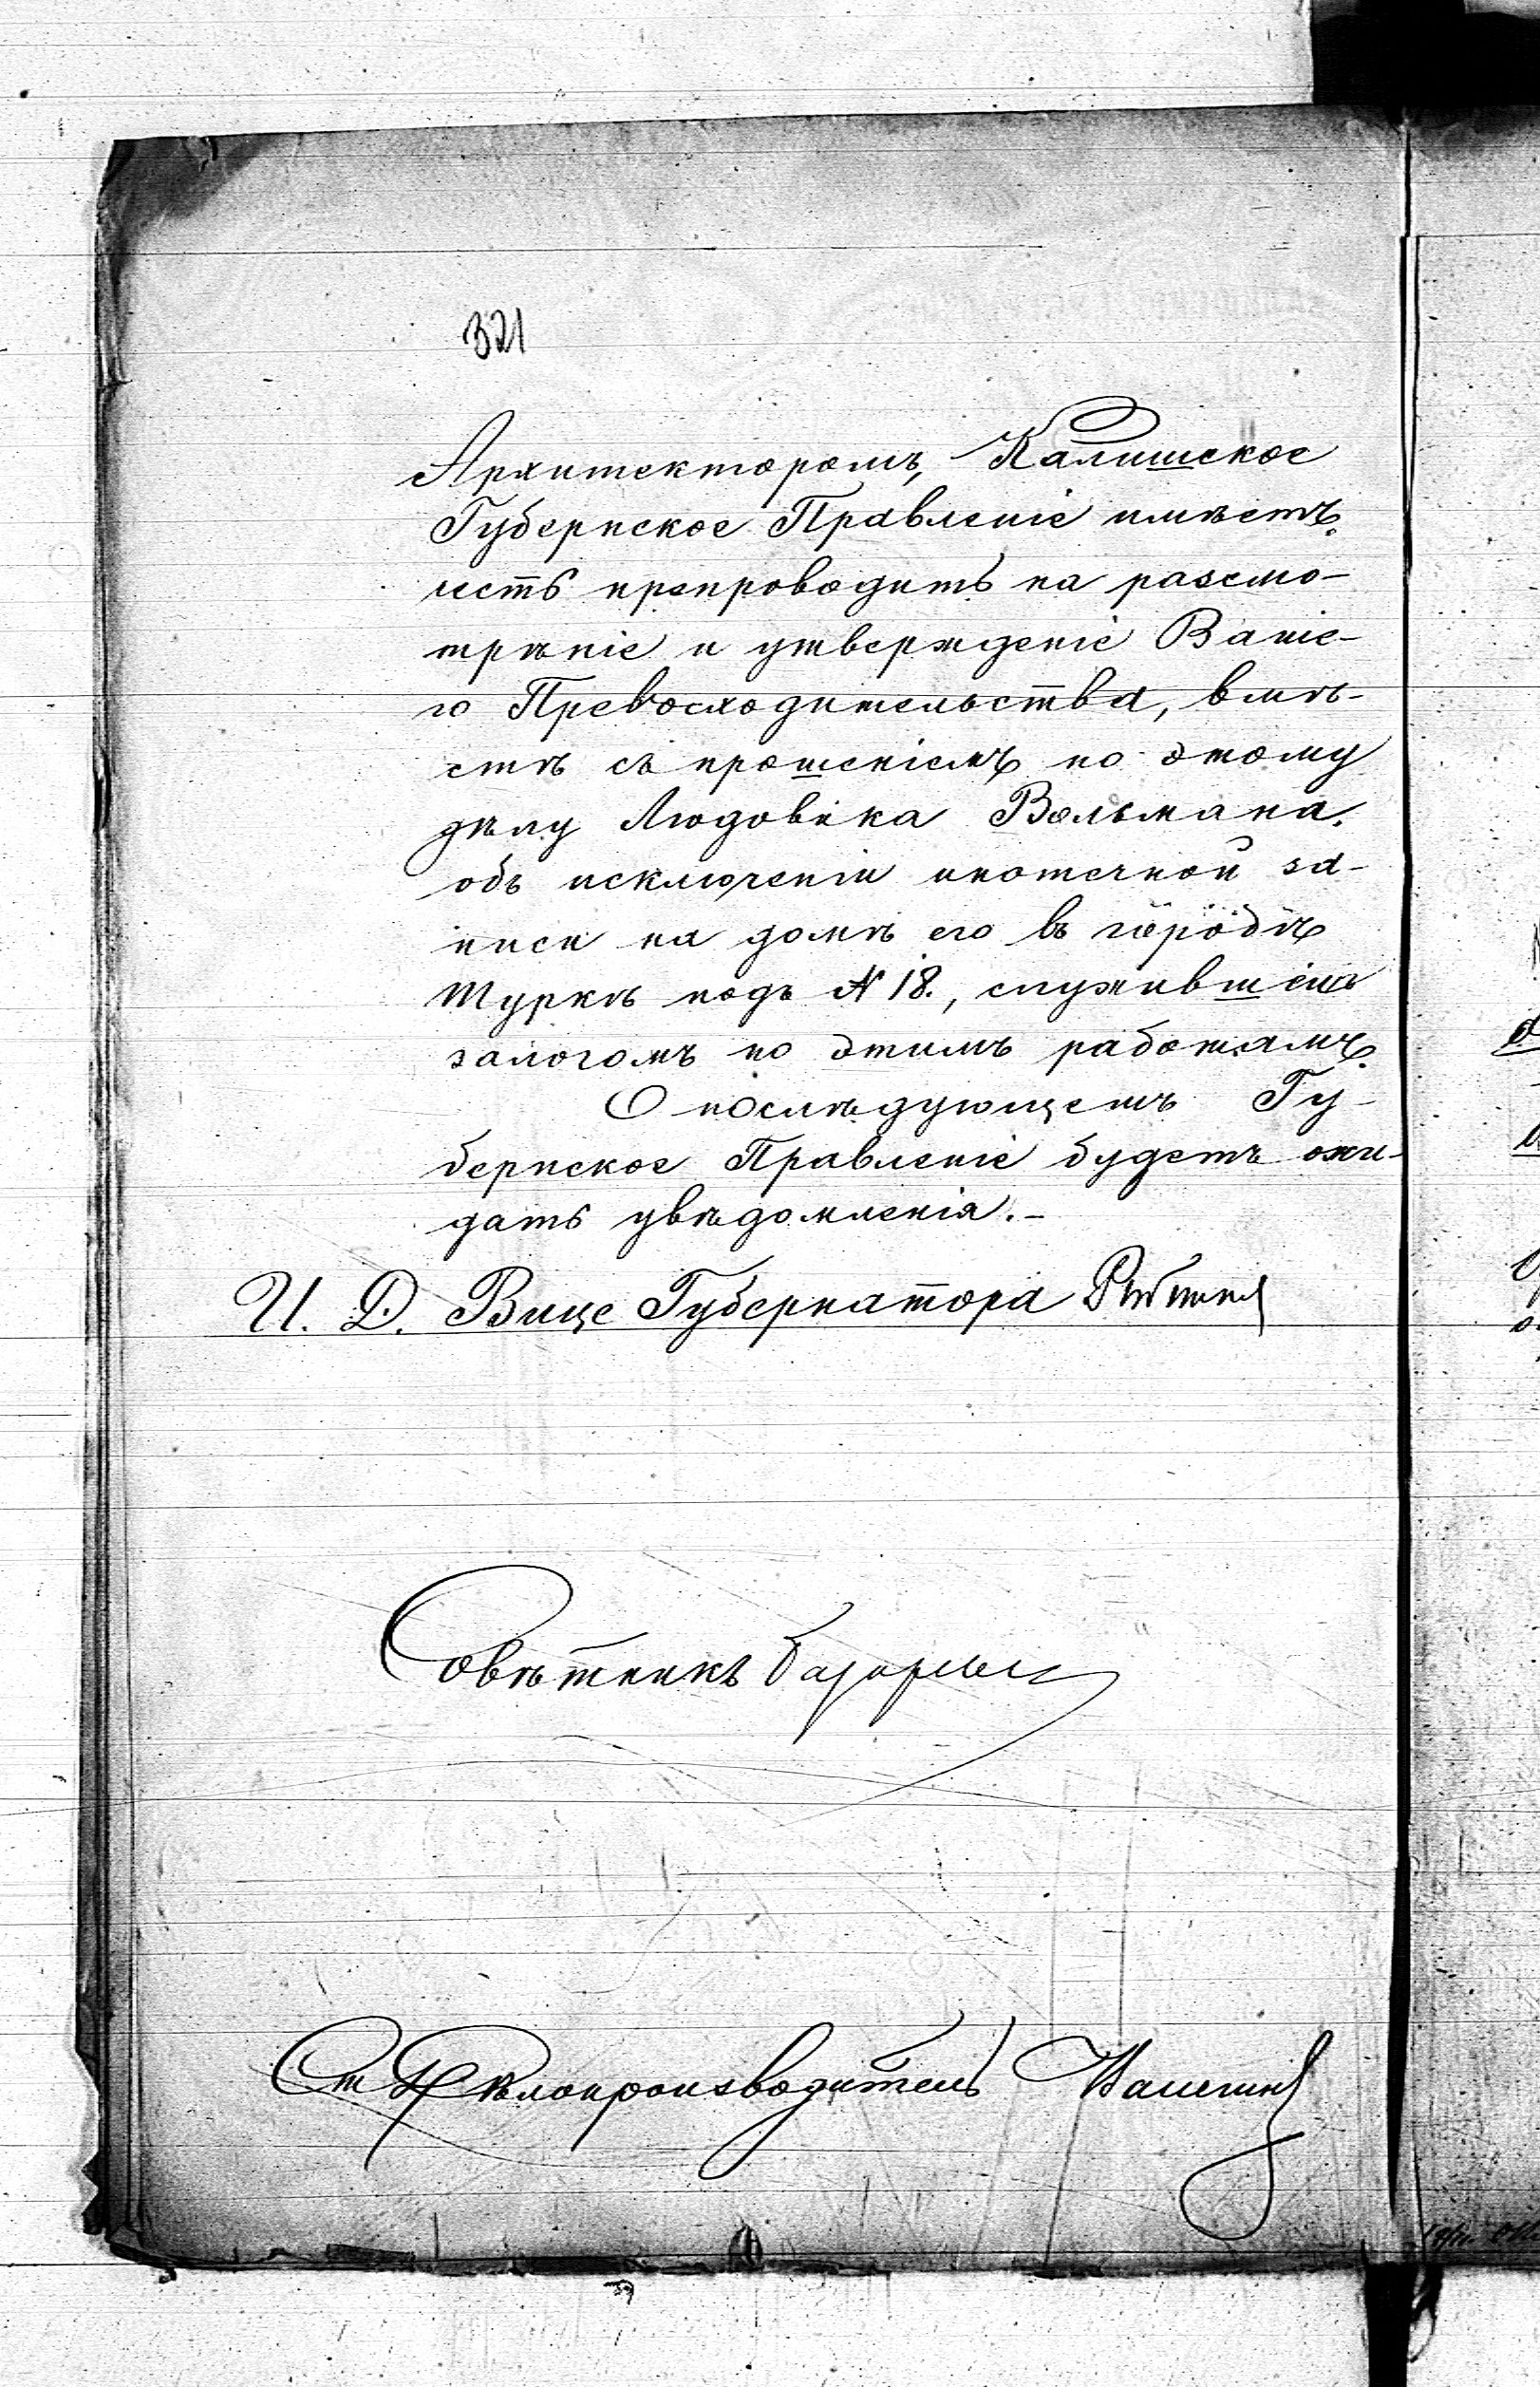 321
Архитекторомъ, Калишское
Губернское Правленіе имѣетъ
честь препроводить на разсмо-
трѣніе и утвержденіе Ваше-
го Превосходительства, вмѣ-
стѣ съ прошеніемъ по этому
дѣлу Людовика Вольмана,
объ исключеніи ипотечной за-
писи на домѣ его въ городѣ
Туркѣ подъ № 18., служившемъ
залогомъ по этимъ работамъ.
О послѣдующемъ Гу-
бернское Правленіе будетъ ожи-
дать увѣдомленія.-
И. Д. Вице Губернатора
Совѣтникъ
Ст Дѣлопроизводитель